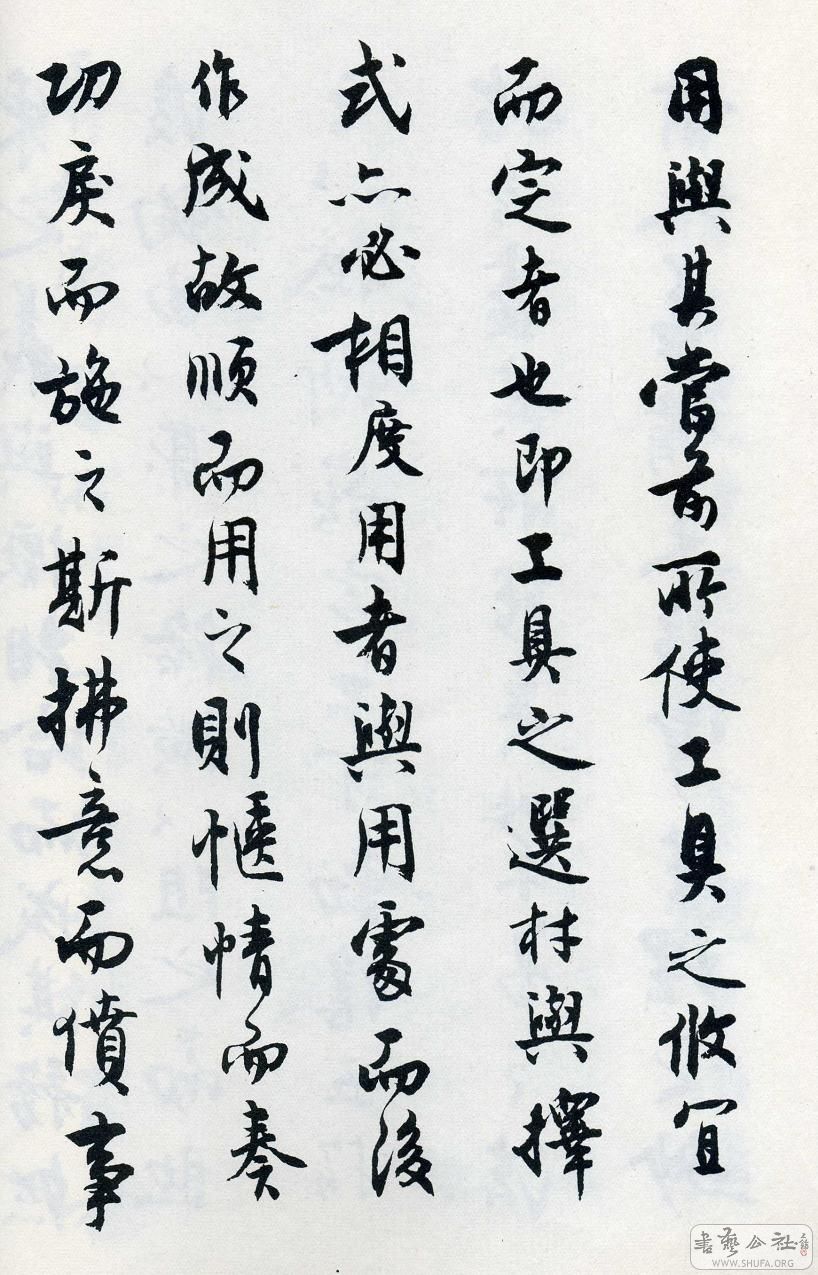 用與其當前所使工具之攸宜
而定者也即工具之選材與擇
式亦必相度用者與用處而後
作成故順而用之則愜情而奏
功戾而施之斯拂意而僨事
書藝公社
WWW.SHUFA.ORG